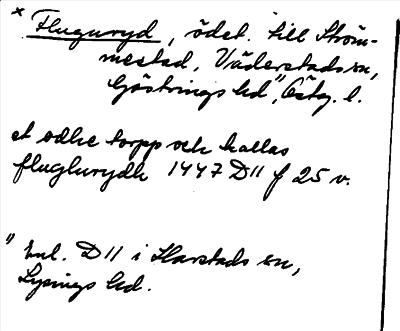 × Fluguryd, ödet. till Ström-
mestad, Väderstads sn,
Göstrings hd", Östg. l.
et ødhe torpp och kallas
fluglurydh 1447 D11 f 25 v.
" Enl. D11 i Harstads sn,
Lysings hd.